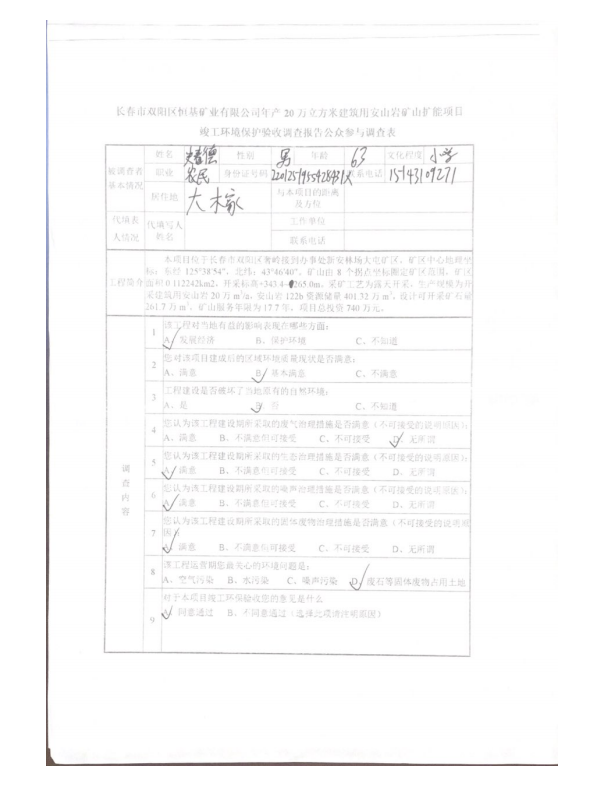 长春市双阳区恒基矿业有限公司年产20万立方米建筑用安山岩矿山扩能项目
竣工环境保护验收调查报告公众参与调查表
被调查者基本情况 姓名 德 性别 男 年龄 63 文化程度 小学
职业 农民 身份证号码 联系电话 15143109271
居住地 大木家 与本项目的距离及方位
代填表人情况 代填写人姓名 工作单位
联系电话
工程简介 本项目位于长春市双阳区奢岭接到办事处新安林场大屯矿区，矿区中心地理坐
标：东经 125°38′54″，北纬：43°46′40″，矿山由 8 个拐点坐标圈定矿区范围，矿区
面积 0.112242km2，开采标高+343.4- 265.0m，采矿工艺为露天开采，生产规模为开
采建筑用安山岩 20 万 m³/a，安山岩 122b 资源储量 401.32 万 m³，设计可开采矿石量
261.7 万 m³，矿山服务年限为 17.7 年，项目总投资 740 万元。
调查内容
1 该工程对当地有益的影响表现在哪些方面：
A、发展经济 B、保护环境 C、不知道
2 您对该项目建成后的区域环境质量现状是否满意：
A、满意 B、基本满意 C、不满意
3 工程建设是否破坏了当地原有的自然环境：
A、是 B、否 C、不知道
4 您认为该工程建设期所采取的废气治理措施是否满意（不可接受的说明原因）：
A、满意 B、不满意但可接受 C、不可接受 D、无所谓
5 您认为该工程建设期所采取的生态治理措施是否满意（不可接受的说明原因）：
A、满意 B、不满意但可接受 C、不可接受 D、无所谓
6 您认为该工程建设期所采取的噪声治理措施是否满意（不可接受的说明原因）：
A、满意 B、不满意但可接受 C、不可接受 D、无所谓
7 您认为该工程建设期所采取的固体废物治理措施是否满意（不可接受的说明原
因）：
A、满意 B、不满意但可接受 C、不可接受 D、无所谓
8 该工程运营期您最关心的环境问题是：
A、空气污染 B、水污染 C、噪声污染 D、废石等固体废物占用土地
9 对于本项目竣工环保验收您的意见是什么
A、同意通过 B、不同意通过（选择此项请注明原因）